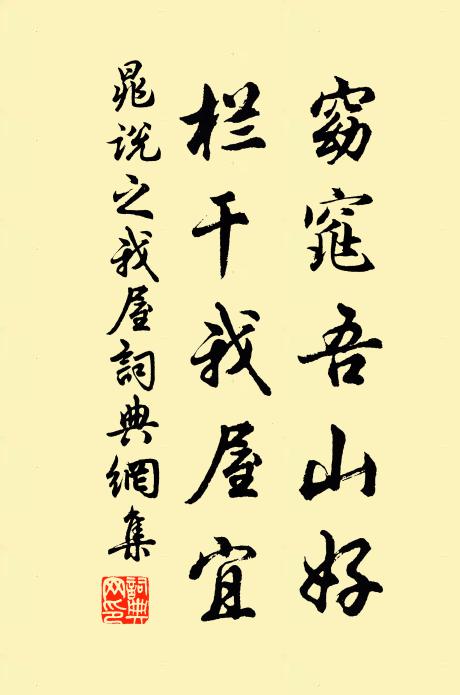 窈窕吾山好
栏干我屋宜
晁说之我屋詞典網集
詞典网印